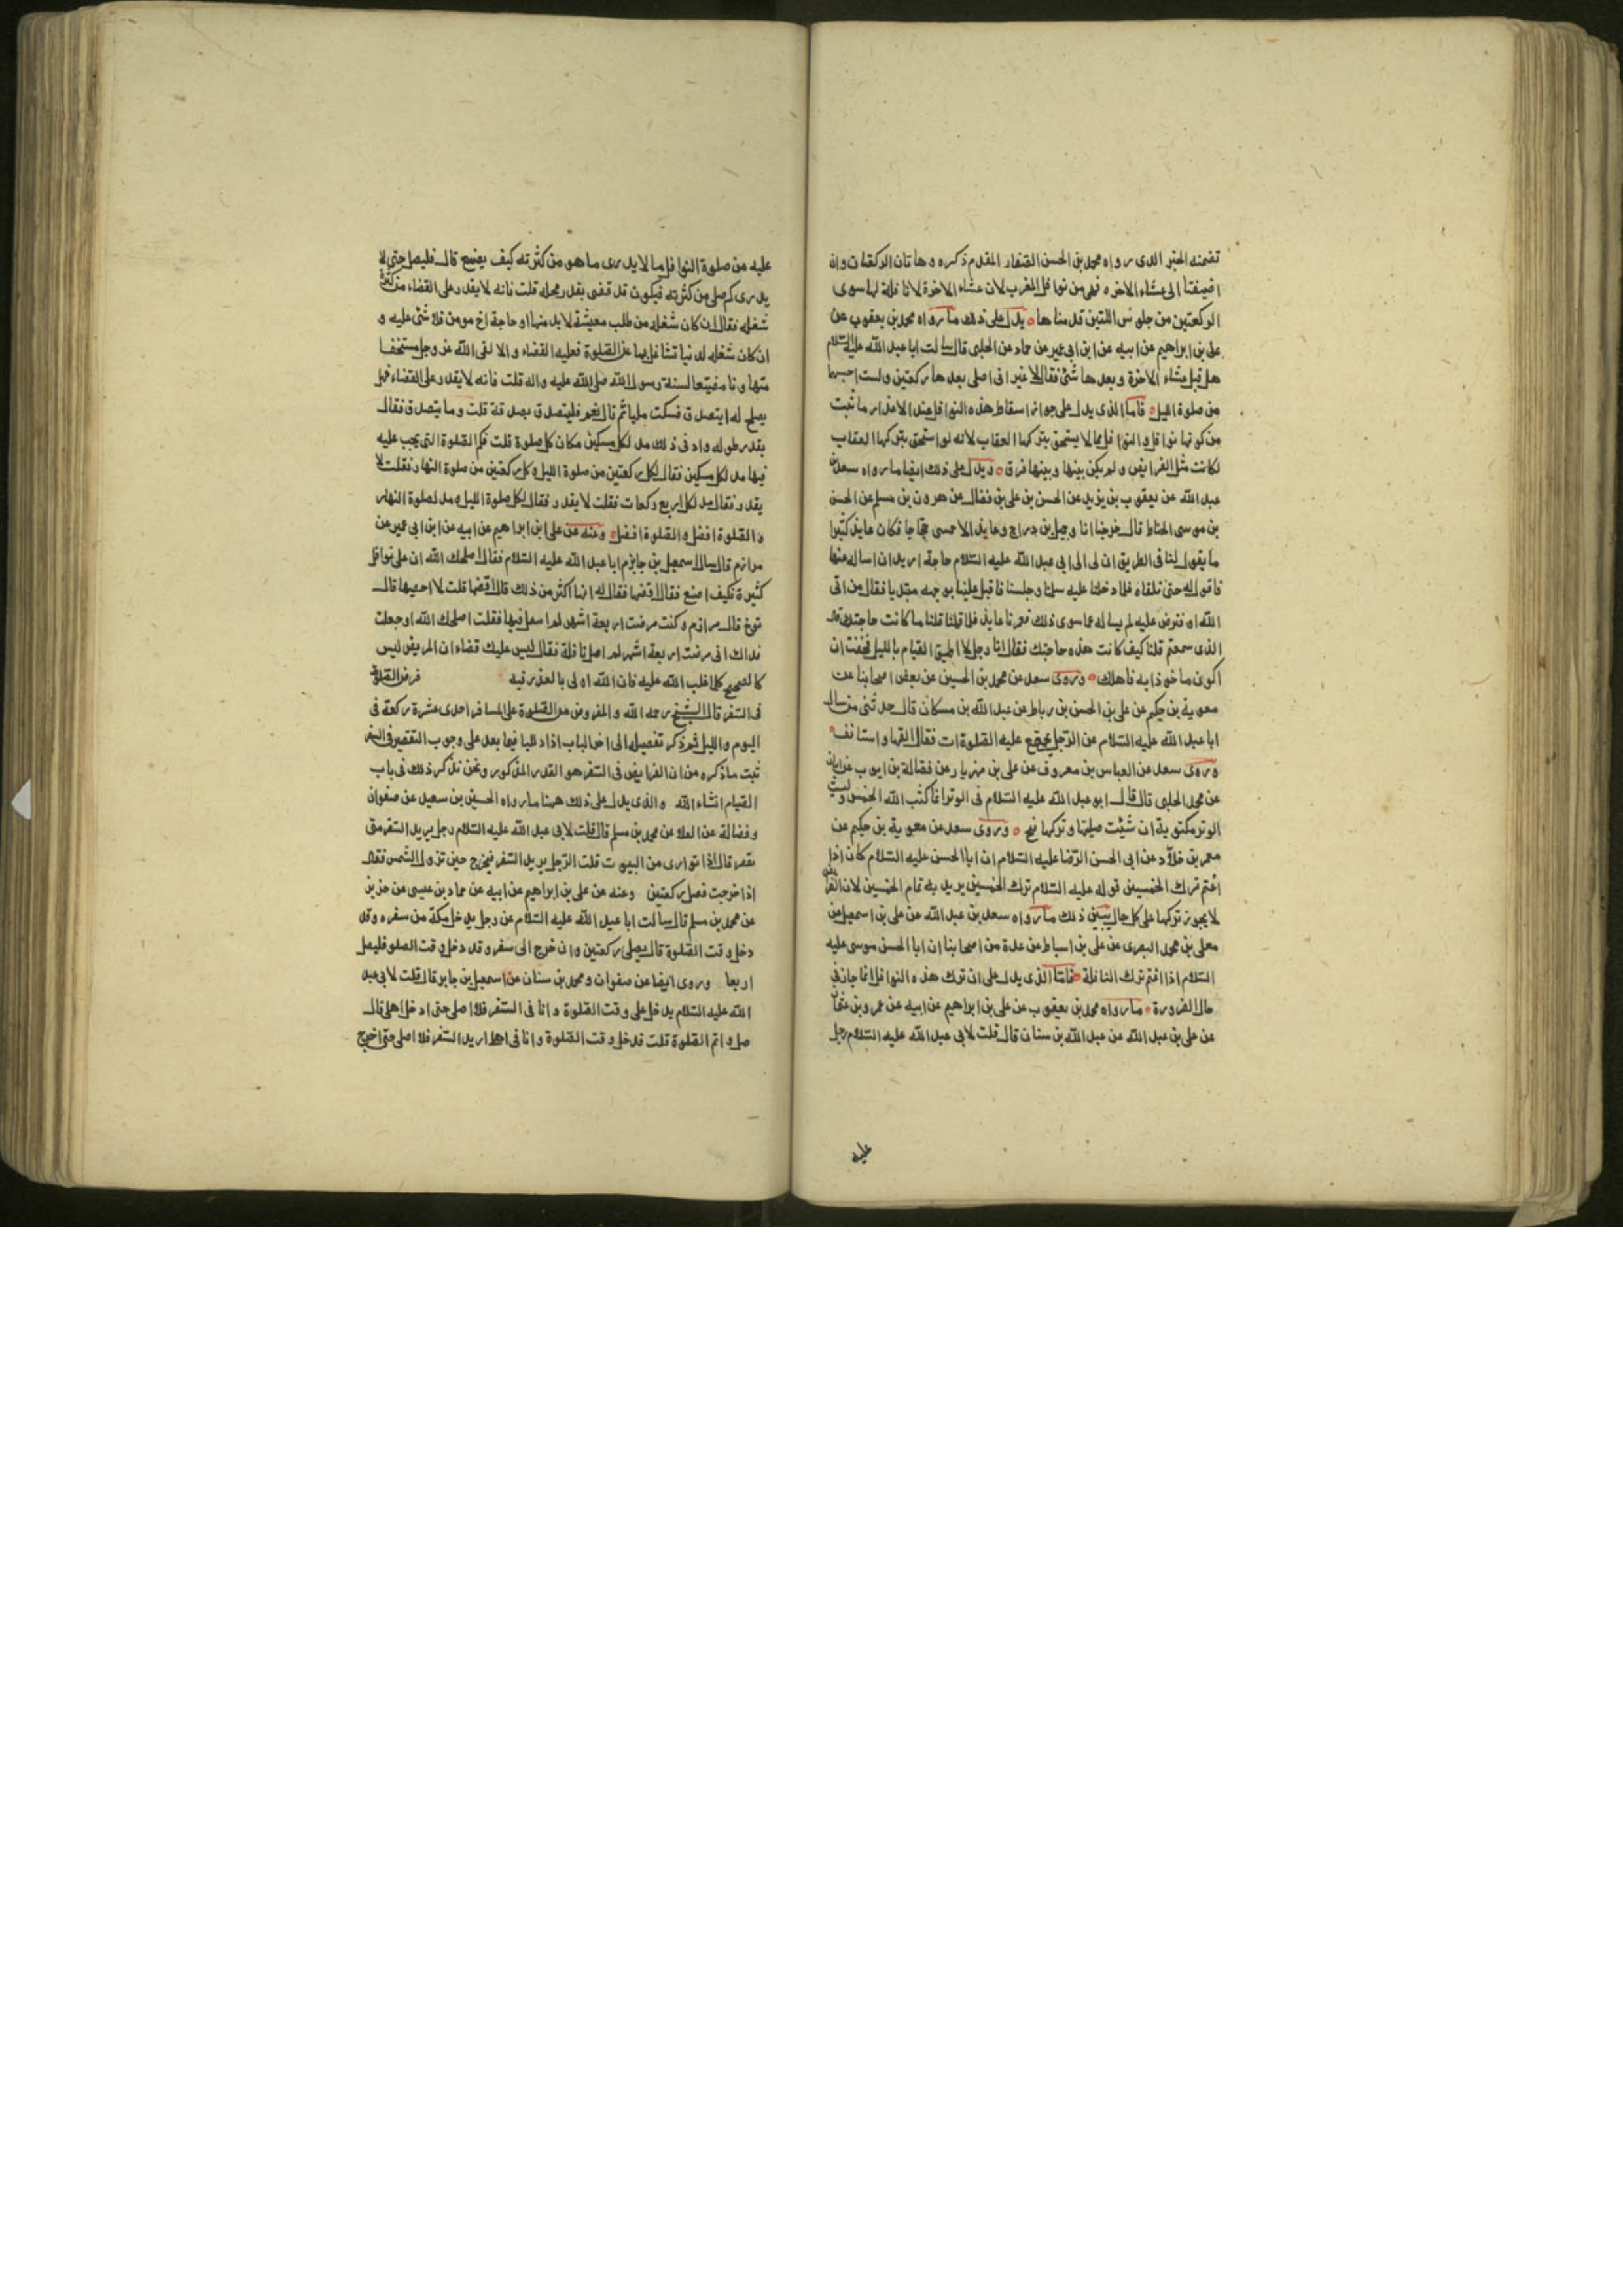 تضمنه الخبر الذى رواه محمد بن الحسن الصفار المقدم ذكره وهاتان الركعتان وان
اضيفتا الى عشاء الاخره فهى من نوافل المغرب لان عشاء الاخرة لا نافلة لها سوى
الركعتين من جلوس اللتين قدمناها يدل على ذلك ما رواه محمد بن يعقوب عن
على بن ابراهيم عن ابيه عن ابن ابى عمير عن حماد عن الحلبى قال سالت ابا عبد الله عليه السلام
هل قبل عشاء الاخرة وبعدها شئ فقال لا غير انى اصلى بعدها ركعتين ولست احسبها
من صلوة الليل فاما الذى يدل على جواز اسقاط هذه النوافل عند الاعذار ما ثبت
من كونها نوافل والنوافل مما لا يستحق بتركها العقاب لانه لو استحق بتركها العقاب
لكانت مثل الفرايض ولم يكن بينها وبينها فرق ويدل على ذلك ايضا ما رواه سعد بن
عبد الله عن يعقوب بن يزيد عن الحسن بن على بن فضال عن هرون بن مسلم عن الحسن
بن موسى الحناط قال خرجنا انا وجميل بن دراج وعايذ الاحمسى حجاجا فكان عايذ كثيرا
ما يقول لنا فى الطريق ان لى الى ابى عبد الله عليه السلام حاجة اريد ان اساله عنها
فاقول له حتى نلقاه فلما دخلنا عليه سلمنا وجلسنا فاقبل علينا بوجهه مبتديا فقال من اتى
الله بما افترض عليه لم يساله عما سوى ذلك فغمزنا عايذ فلما قمنا قلنا ما كانت حاجتك قال
الذى سمعتم قلنا كيف كانت هذه حاجتك فقال انا رجل لا اطيق القيام بالليل فخفت ان
اكون ماخوذا به فاهلك وروى سعد عن محمد بن الحسين عن بعض اصحابنا عن
معوية بن حكيم عن على بن الحسن بن رباط عن عبد الله بن مسكان قال حدثنى من سال
ابا عبد الله عليه السلام عن الرجل يجتمع عليه الصلوات فقال القها واستانف
وروى سعد عن العباس بن معروف عن على بن مهزيار عن فضالة بن ايوب عن ابان
عن محمد الحلبى قال قال ابو عبد الله عليه السلام فى الوتر انما كتب الله الخمس وليست
الوتر مكتوبة ان شئت صليتها وتركها قبيح وروى سعد عن معوية بن حكيم عن
معمر بن خلاد عن ابى الحسن الرضا عليه السلام ان ابا الحسن عليه السلام كان اذا
اغتم ترك الخمسين قوله عليه السلام ترك الخمسين يريد به تمام الخمسين لان الفرايض
لا يجوز تركها على كل حال يبين ذلك ما رواه سعد بن عبد الله عن على بن اسمعيل عن
معلى بن محمد البصرى عن على بن اسباط عن عدة من اصحابنا ان ابا الحسن موسى عليه
السلام اذا اغتم ترك النافلة فاما الذى يدل على ان ترك هذه النوافل انما جاز فى
حال الضرورة ما رواه محمد بن يعقوب عن على بن ابراهيم عن ابيه عن عمرو بن عثمان
عن على بن عبد الله عن عبد الله بن سنان قال قلت لابى عبد الله عليه السلام رجل
عليه
عليه من صلوة النوافل ما لا يدرى ما هو من كثرته كيف يصنع قال فليصل حتى لا
يدرى كم صلى من كثرته فيكون قد قضى بقدر محله قلت فانه لا يقدر على القضاء من كثرة
شغله فقال ان كان شغله من طلب معيشة لا بد منها او حاجة اخ مومن فلا شئ عليه و
ان كان شغله لدنيا تشاغل بها عن الصلوة فعليه القضاء والا لقى الله عز وجل مستخفا
متهاونا مضيعا لسنة رسول الله صلى الله عليه واله قلت فانه لا يقدر على القضاء فهل
يصلح له ان يتصدق فسكت مليا ثم قال نعم فليتصدق بصدقة قلت وما يتصدق فقال
بقدر طوله وادنى ذلك مد لكل مسكين مكان كل صلوة قلت فكم الصلوة التى يجب عليه
فيها مد لكل مسكين فقال لكل ركعتين من صلوة الليل وكل ركعتين من صلوة النهار فقلت لا
يقدر فقال مد لكل اربع ركعات فقلت لا يقدر فقال لكل صلوة الليل ومد لصلوة النهار
والصلوة افضل والصلوة افضل وعنه عن على ابن ابراهيم عن ابيه عن ابن ابى عمير عن
مرازم قال سال اسمعيل بن جابر ابا عبد الله عليه السلام فقال اصلحك الله ان على نوافل
كثيرة فكيف اصنع فقال اقضها فقال له انها اكثر من ذلك قال اقضها قلت لا احصيها قال
توخ قال مرازم وكنت مرضت اربعة اشهر لم اتنفل فيها فقلت اصلحك الله وجعلت
فداك انى مرضت اربعة اشهر لم اصل نافلة فقال ليس عليك قضاء ان المريض ليس
كالصحيح كلما غلب الله عليه فان الله اولى بالعذر فيه فرض الصلوة
فى السفر قال الشيخ رحمه الله والمفروض من الصلوة على المسافر احدى عشرة ركعة فى
اليوم والليل ثم ذكر تفصيله الى اخر الباب اذا دللنا فيما بعد على وجوب التقصير فى السفر
ثبت ما ذكره من ان الفرايض فى السفر هو القدر المذكور ونحن نذكر ذلك فى باب
القيام انشاء الله والذى يدل على ذلك ههنا ما رواه الحسين بن سعيد عن صفوان
وفضالة عن العلا عن محمد بن مسلم قال قلت لابى عبد الله عليه السلام رجل يريد السفر متى
يقصر قال اذا توارى من البيوت قلت الرجل يريد السفر فيخرج حين تزول الشمس فقال
اذا خرجت فصل ركعتين وعنه عن على بن ابراهيم عن ابيه عن حماد بن عيسى عن حريز
عن محمد بن مسلم قال سالت ابا عبد الله عليه السلام عن رجل يدخل مكة من سفره وقد
دخل وقت الصلوة قال يصلى ركعتين وان خرج الى سفر وقد دخل وقت الصلو فليصل
اربعا وروى ايضا عن صفوان ومحمد بن سنان عن اسمعيل بن جابر قال قلت لابى عبد
الله عليه السلام يدخل على وقت الصلوة وانا فى السفر فلا اصلى حتى ادخل اهلى قال
صل واتم الصلوة قلت فدخل وقت الصلوة وانا فى اهلى اريد السفر فلا اصلى حتى اخرج